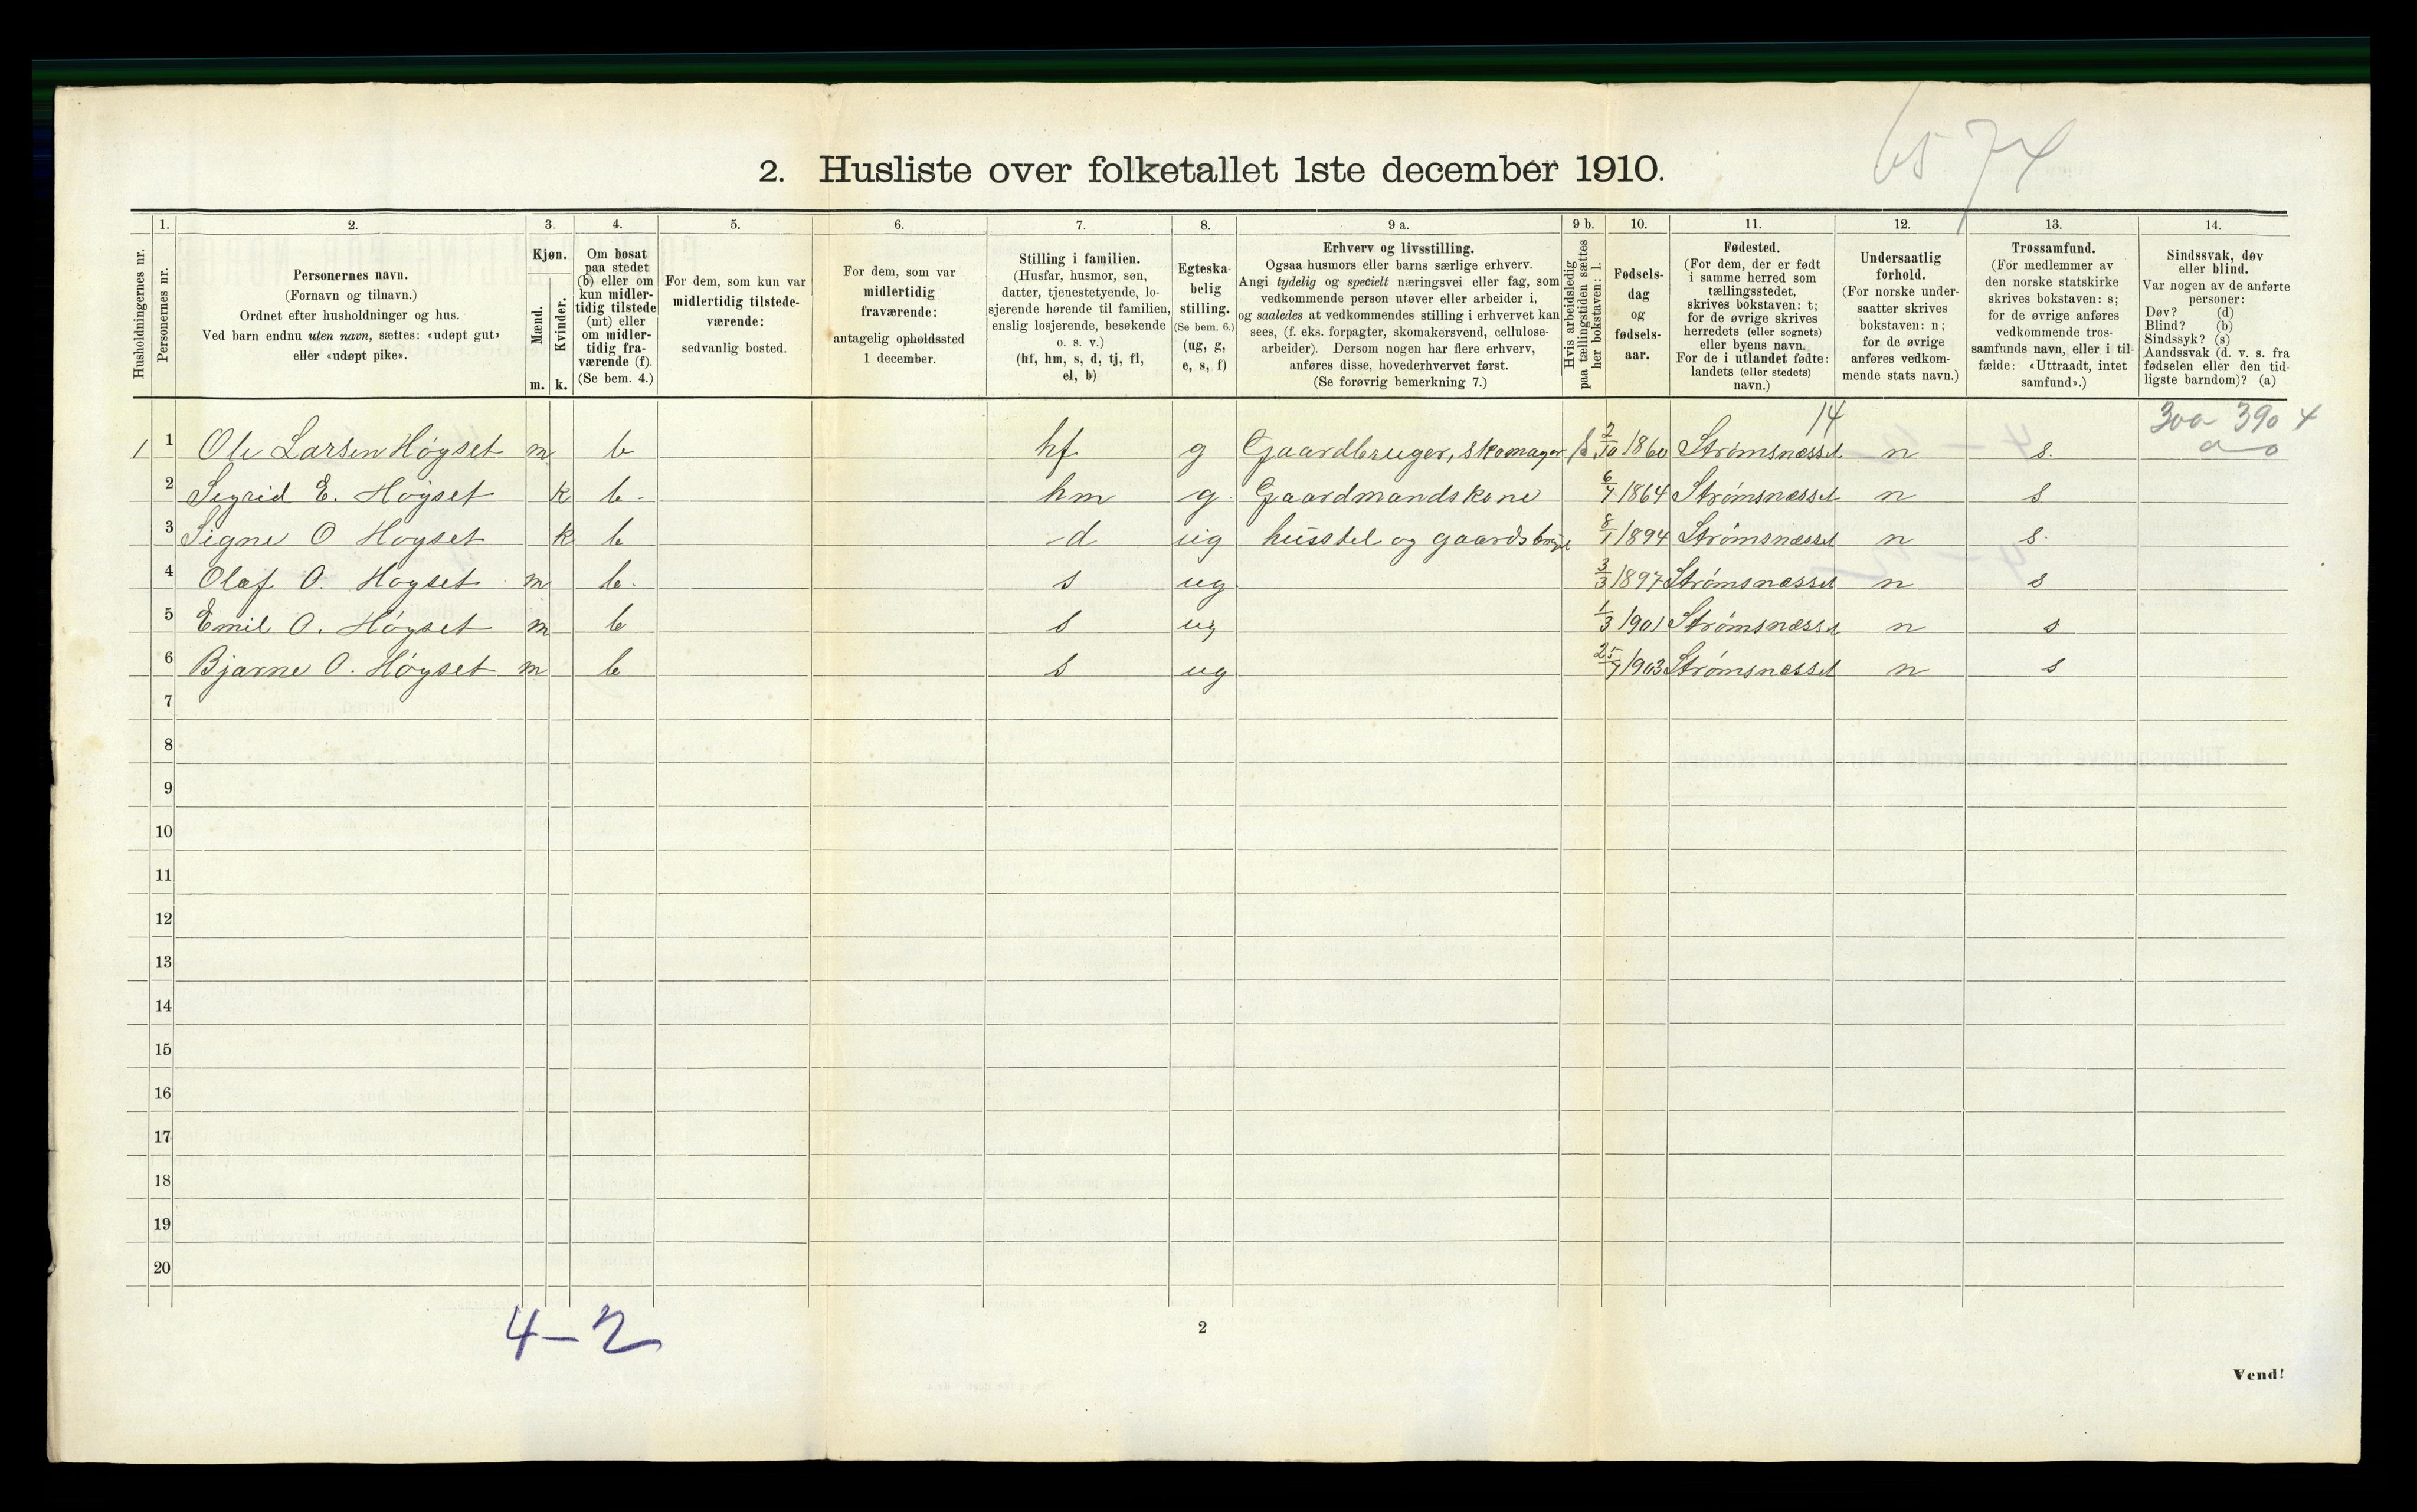 65 74
2. Husliste over folketallet 1ste december 1910.
1. 2. 3. 4. 5. 6. 7. 8. 9 a. 9 b. 10. 11. 12. 13. 14.
Husholdningernes nr.
Personernes nr.
Personernes navn.
(Fornavn og tilnavn.)
Ordnet efter husholdninger og hus.
Ved barn endnu uten navn, sættes: «udøpt gut»
eller «udøpt pike».
Kjøn.
Mænd.
Kvinder.
m. k.
Om bosat
paa stedet
(b) eller om
kun midler-
tidig tilstede
(mt) eller
om midler-
tidig fra-
værende (f).
(Se bem. 4.)
For dem, som kun var
midlertidig tilstede-
værende:
sedvanlig bosted.
For dem, som var
midlertidig
fraværende:
antagelig opholdssted
1 december.
Stilling i familien.
(Husfar, husmor, søn,
datter, tjenestetyende, lo-
sjerende hørende til familien,
enslig losjerende, besøkende
o. s. v.)
(hf, hm, s, d, tj, fl,
el, b)
Egteska-
belig
stilling.
(Se bem. 6.)
(ug, g,
e, s, f)
Erhverv og livsstilling.
Ogsaa husmors eller barns særlige erhverv.
Angi tydelig og specielt næringsvei eller fag, som
vedkommende person utøver eller arbeider i,
og saaledes at vedkommendes stilling i erhvervet kan
sees, (f. eks. forpagter, skomakersvend, cellulose-
arbeider). Dersom nogen har flere erhverv,
anføres disse, hovederhvervet først.
(Se forøvrig bemerkning 7.)
Hvis arbeidsledig
paa tællingstiden sættes
her bokstaven: l.
Fødsels-
dag
og
fødsels-
aar.
Fødested.
(For dem, der er født
i samme herred som
tællingsstedet,
skrives bokstaven: t;
for de øvrige skrives
herredets (eller sognets)
eller byens navn.
For de i utlandet fødte:
landets (eller stedets)
navn.)
Undersaatlig
forhold.
(For norske under-
saatter skrives
bokstaven: n;
for de øvrige
anføres vedkom-
mende stats navn.)
Trossamfund.
(For medlemmer av
den norske statskirke
skrives bokstaven: s;
for de øvrige anføres
vedkommende tros-
samfunds navn, eller i til-
fælde: «Uttraadt, intet
samfund».)
Sindssvak, døv
eller blind.
Var nogen av de anførte
personer:
Døv? (d)
Blind? (b)
Sindssyk? (s)
Aandssvak (d. v. s. fra
fødselen eller den tid-
ligste barndom)? (a)
14 300 390 4
1 1 Ole Larsen Høgset m b hf g Gaardbruger, skomager 2/10 1860 Strømsnæsset n s.
2 Sigrid E. Høgset k b. hm g. Gaardmandskone 6/7 1864 Strømsnæsset n s
3 Signe O Høgset k b d ug husstel og gaardsbrug 8/1 1894 Strømsnæsset n s.
4 Olaf O. Høgset m b. s ug. 3/3 1897 Strømsnæsset n s
5 Emil O. Høgset m b s ug 1/3 1901 Strømsnæsset n s
6 Bjarne O. Høgset m b s ug 25/7 1903 Strømsnæsset n s
7
8
9
10
11
12
13
14
15
16
17
18
19
20
4-2
2
Vend!